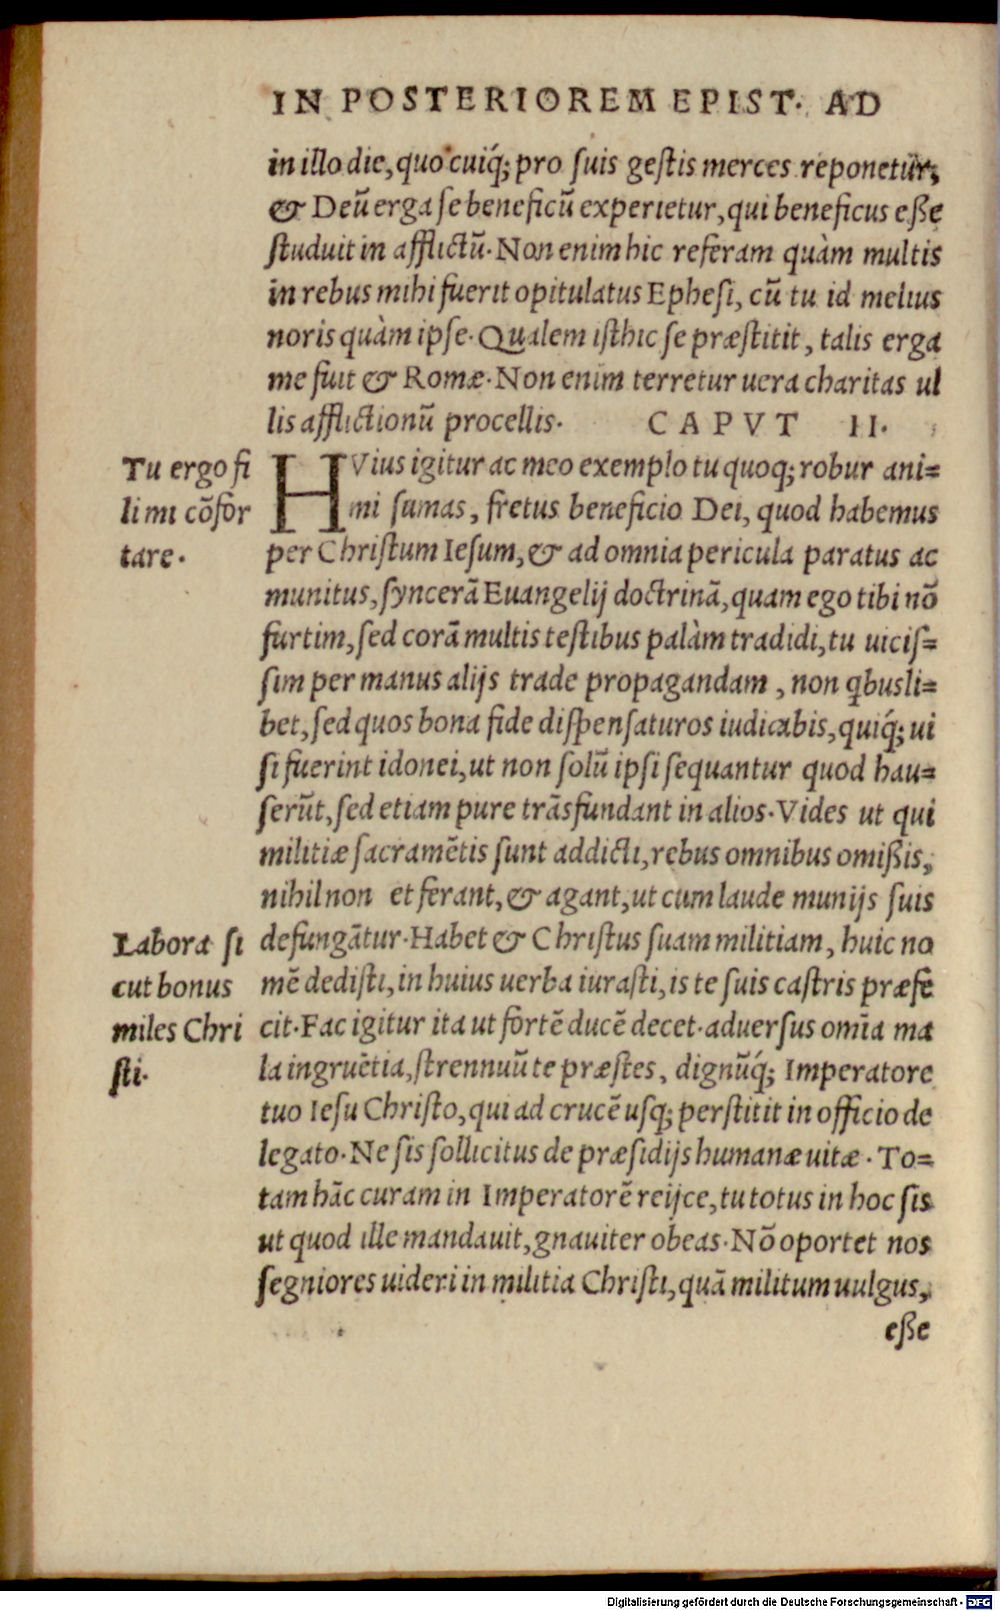 IN POSTERIOREM EPIST. AD
in illo die, quo cuiq́; pro suis gestis merces reponetur,
& Deũ erga se beneficũ experietur, qui beneficus eße
studuit in afflictũ. Non enim hic referam quàm multis
in rebus mihi fuerit opitulatus Ephesi, cũ tu id melius
noris quàm ipse. Qualem isthic se præstitit, talis erga
me fuit & Romæ. Non enim terretur uera charitas ul
lis afflictionũ procellis. CAPVT II.
Tu ergo fi
li mi cõfor
tare.
HVius igitur ac meo exemplo tu quoq; robur ani=
mi sumas, fretus beneficio Dei, quod habemus
per Christum Iesum, & ad omnia pericula paratus ac
munitus, syncerã Euangelij doctrinã, quam ego tibi nõ
furtim, sed corã multis testibus palàm tradidi, tu uicis=
sim per manus alijs trade propagandam, non qbusli=
bet, sed quos bona fide dispensaturos iudicabis, quiq́; ui
si fuerint idonei, ut non solũ ipsi sequantur quod hau=
serũt, sed etiam pure trãsfundant in alios. Vides ut qui
militiæ sacramẽtis sunt addicti, rebus omnibus omißis,
nihil non et ferant, & agant, ut cum laude munijs suis
Labora si
cut bonus
miles Chri
sti.
defungãtur. Habet & Christus suam militiam, huic no
mẽ dedisti, in huius uerba iurasti, is te suis castris præfe
cit. Fac igitur ita ut fortẽ ducẽ decet. aduersus omĩa ma
la ingruẽtia, strennuũ te præstes, dignũq́; Imperatore
tuo Iesu Christo, qui ad crucẽ usq; perstitit in officio de
legato. Ne sis sollicitus de præsidijs humanæ uitæ. To=
tam hãc curam in Imperatorẽ reijce, tu totus in hoc sis
ut quod ille mandauit, gnauiter obeas. Nõ oportet nos
segniores uideri in militia Christi, quã militum uulgus,
eße
Digitalisierung gefördert durch die Deutsche Forschungsgemeinschaft - DFG